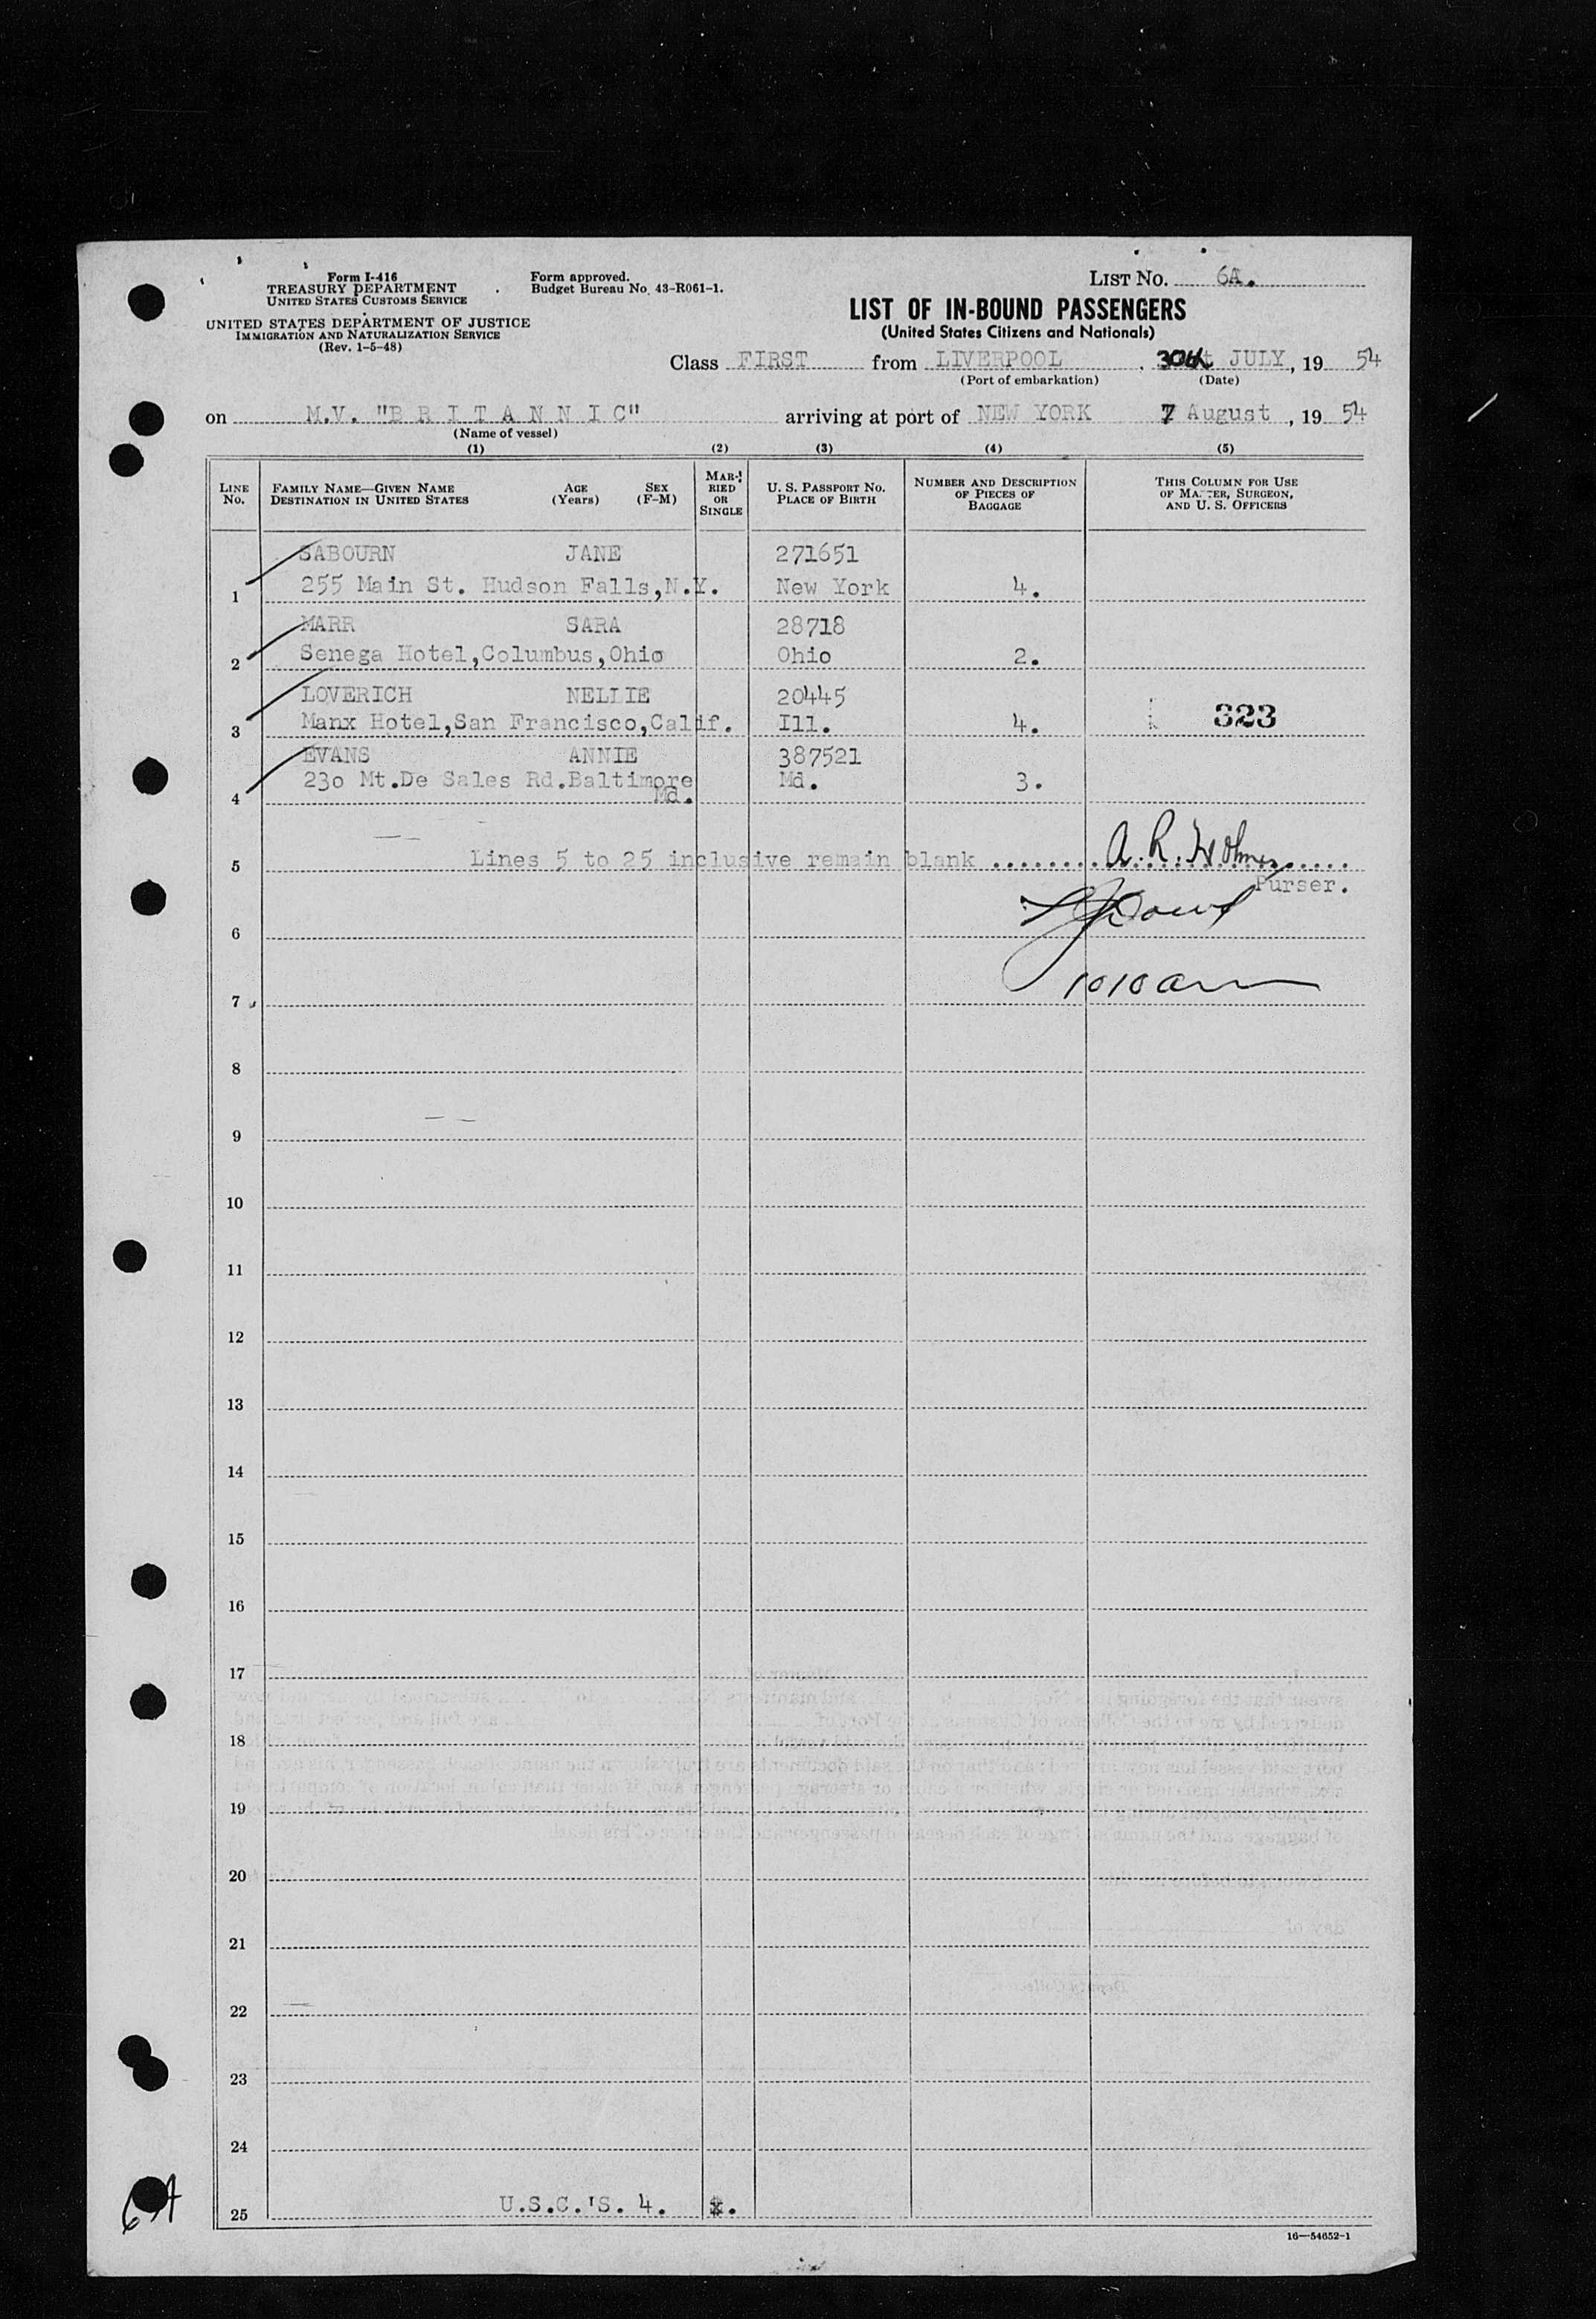 Form I-416
TREASURY DEPARTMENT
UNITED STATES CUSTOMS SERVICE
UNITED STATES DEPARTMENT OF JUSTICE
IMMIGRATION AND NATURALIZATION SERVICE
(Rev. 1-5-48)
Form approved.
Budget Bureau No. 43-R061-1.
LIST NO. 6A.
LIST OF IN-BOUND PASSENGERS
(United States Citizens and Nationals)
Class FIRST from LIVERPOOL, 30th JULY, 19 54
(Port of embarkation) (Date)
on M.V. "B R I T A N N I C" arriving at port of NEW YORK 7 August, 19 54
(Name of vessel)
(1) (2) (3) (4) (5)
LINE NO.
FAMILY NAME—GIVEN NAME
DESTINATION IN UNITED STATES
AGE (Years)
SEX (F-M)
MARRIED OR SINGLE
U. S. PASSPORT NO.
PLACE OF BIRTH
NUMBER AND DESCRIPTION OF PIECES OF BAGGAGE
THIS COLUMN FOR USE OF MASTER, SURGEON, AND U. S. OFFICERS
SABOURN JANE 271651
1 255 Main St. Hudson Falls,N.Y. New York 4.
MARR SARA 28718
2 Senega Hotel,Columbus,Ohio Ohio 2.
LOVERICH NELLIE 20445
3 Manx Hotel,San Francisco,Calif. Ill. 4. 323
EVANS ANNIE 387521
4 23o Mt.De Sales Rd.Baltimore Md. 3.
Md.
5 Lines 5 to 25 inclusive remain blank ........ A. R. .....
Purser.
6
1010 am
7
8
9
10
11
12
13
14
15
16
17
18
19
20
21
22
23
24
25 U.S.C.'S. 4.
16—54652-1
6A